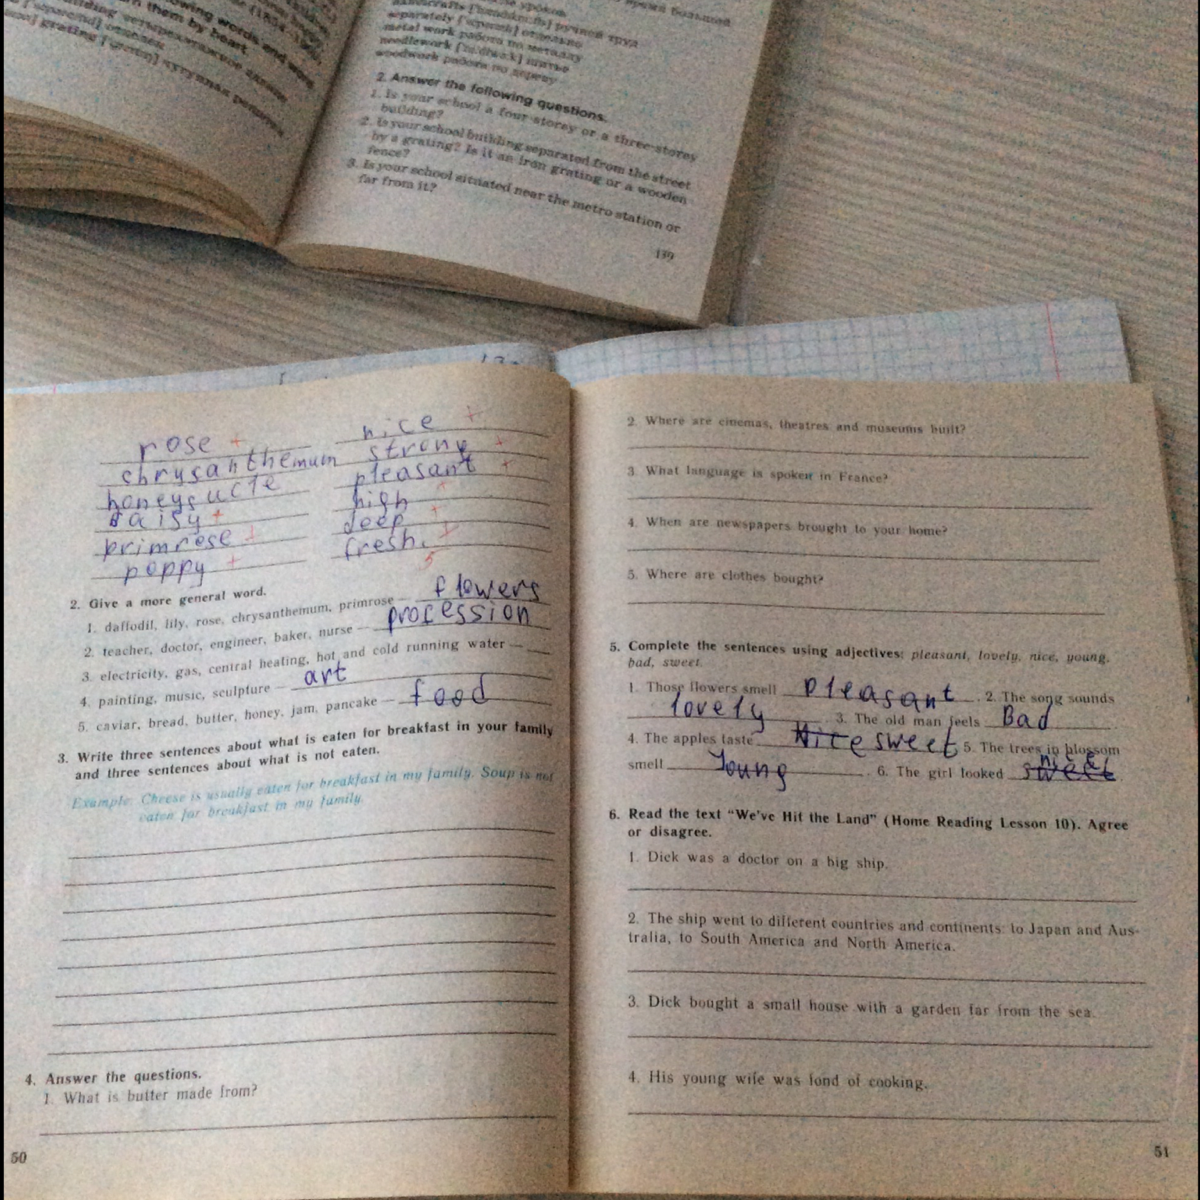 handicrafts ручной труд
separately отдельно
metal work работа по металлу
needlework шитье
woodwork работа по дереву
2. Answer the following questions.
1. Is your school a four-storey or a three-storey
building?
2. Is your school building separated from the street
by a grating? Is it an iron grating or a wooden
fence?
3. Is your school situated near the metro station or
far from it?
139
rose +
chrysanthemum
honeysucle
daisy +
primrese +
poppy +
nice +
strong +
pleasant +
high +
deep +
fresh. +
5
2. Give a more general word.
1. daffodil, lily, rose, chrysanthemum, primrose — flowers
2. teacher, doctor, engineer, baker, nurse — procession
3. electricity, gas, central heating, hot and cold running water —
4. painting, music, sculpture — art
5. caviar, bread, butter, honey, jam, pancake — food
3. Write three sentences about what is eaten for breakfast in your family
and three sentences about what is not eaten.
Example: Cheese is usually eaten for breakfast in my family. Soup is not
eaten for breakfast in my family.
4. Answer the questions.
1. What is butter made from?
50
2. Where are cinemas, theatres and museums built?
3. What language is spoken in France?
4. When are newspapers brought to your home?
5. Where are clothes bought?
5. Complete the sentences using adjectives: pleasant, lovely, nice, young,
bad, sweet.
1. Those flowers smell pleasant. 2. The song sounds
lovely. 3. The old man feels Bad.
4. The apples taste Nice sweet 5. The trees in blossom
smell Young. 6. The girl looked sweet nice.
6. Read the text "We've Hit the Land" (Home Reading Lesson 10). Agree
or disagree.
1. Dick was a doctor on a big ship.
2. The ship went to different countries and continents: to Japan and Aus-
tralia, to South America and North America.
3. Dick bought a small house with a garden far from the sea.
4. His young wife was fond of cooking.
51